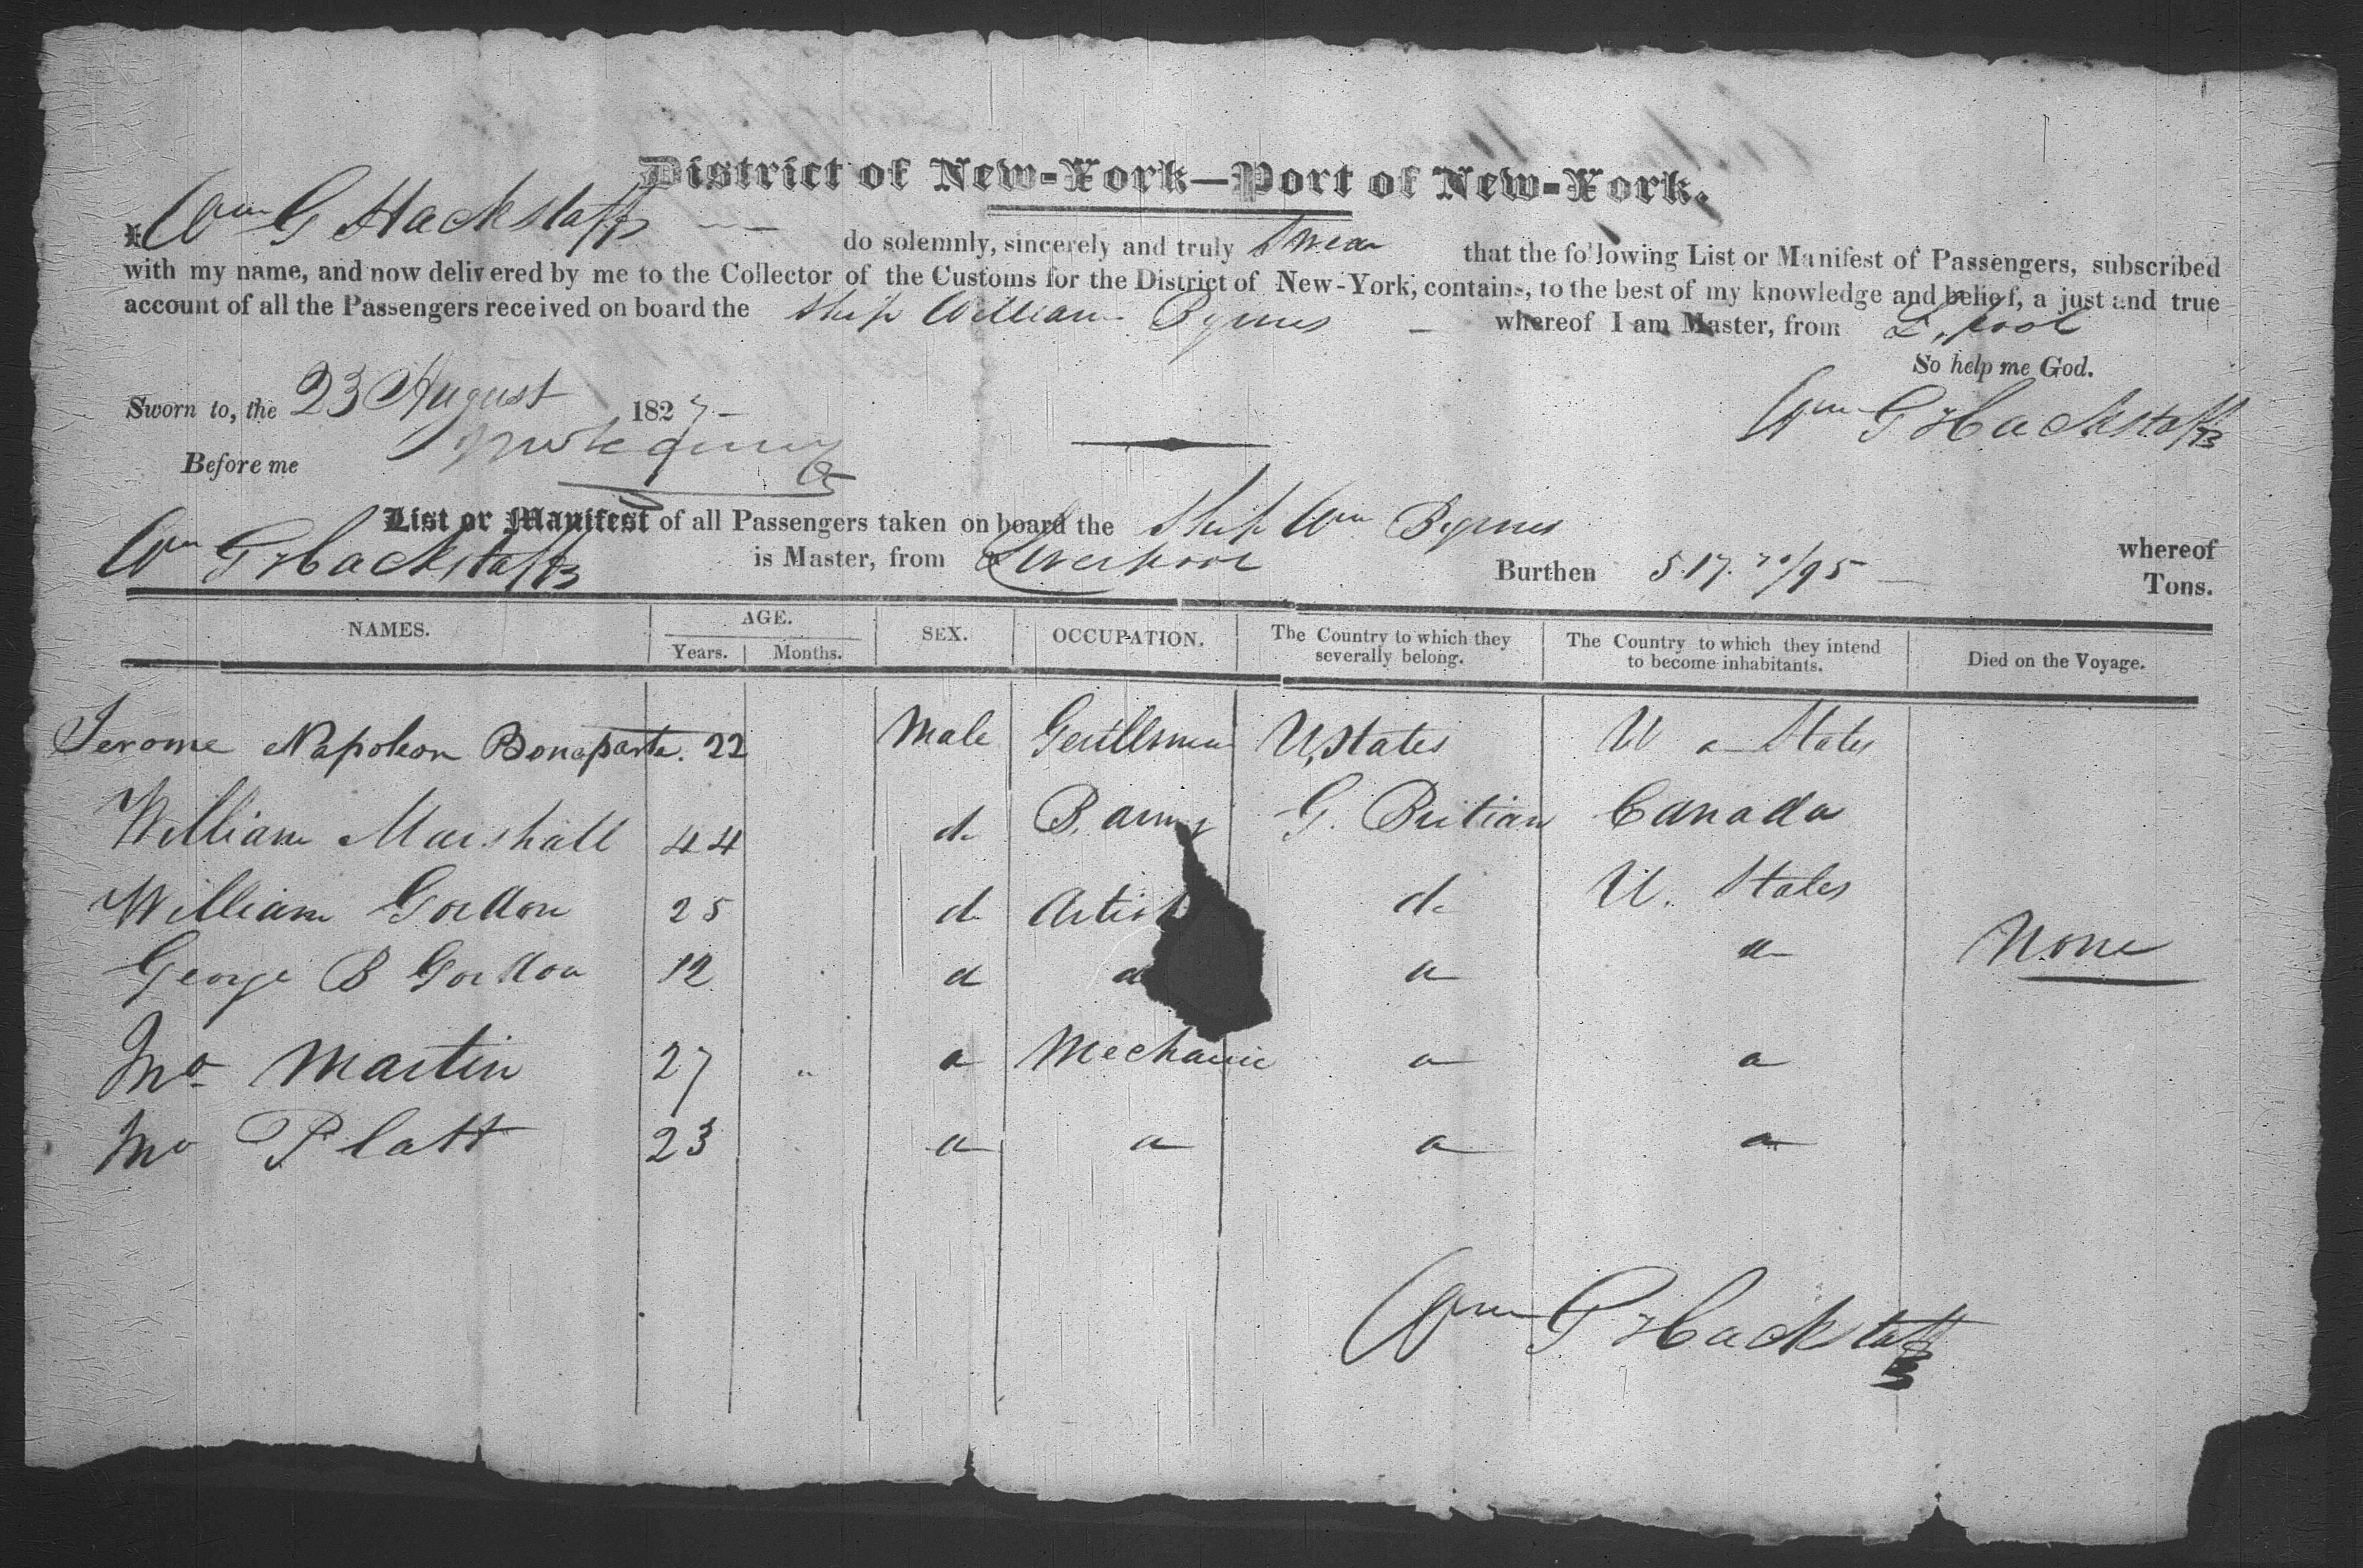 District of New-York—Port of New-York.
I Wm G Hackstaff do solemnly, sincerely and truly Swear that the following List or Manifest of Passengers, subscribed
with my name, and now delivered by me to the Collector of the Customs for the District of New-York, contains, to the best of my knowledge and belief, a just and true
account of all the Passengers received on board the Ship William Byrnes whereof I am Master, from L.pool
So help me God.
Sworn to, the 23 August 1827 Wm G Hackstaff
Before me
List or Manifest of all Passengers taken on board the Ship Wm Byrnes whereof
Wm G Hackstaff is Master, from Liverpool Burthen 517 70/95 Tons.
NAMES. AGE. SEX. OCCUPATION. The Country to which they severally belong. The Country to which they intend to become inhabitants. Died on the Voyage.
Years. Months.
Jerome Napoleon Bonaparte. 22 Male Gentleman U, States U States
William Marshall 44 do B. army G. Britian Canada
William Gordon 25 do Artist do U. States
George B Gordon 12 do do do do None
Jno Martin 27 " do Mechanic do do
Jno Platt 23 do do do do
Wm G Hackstaff